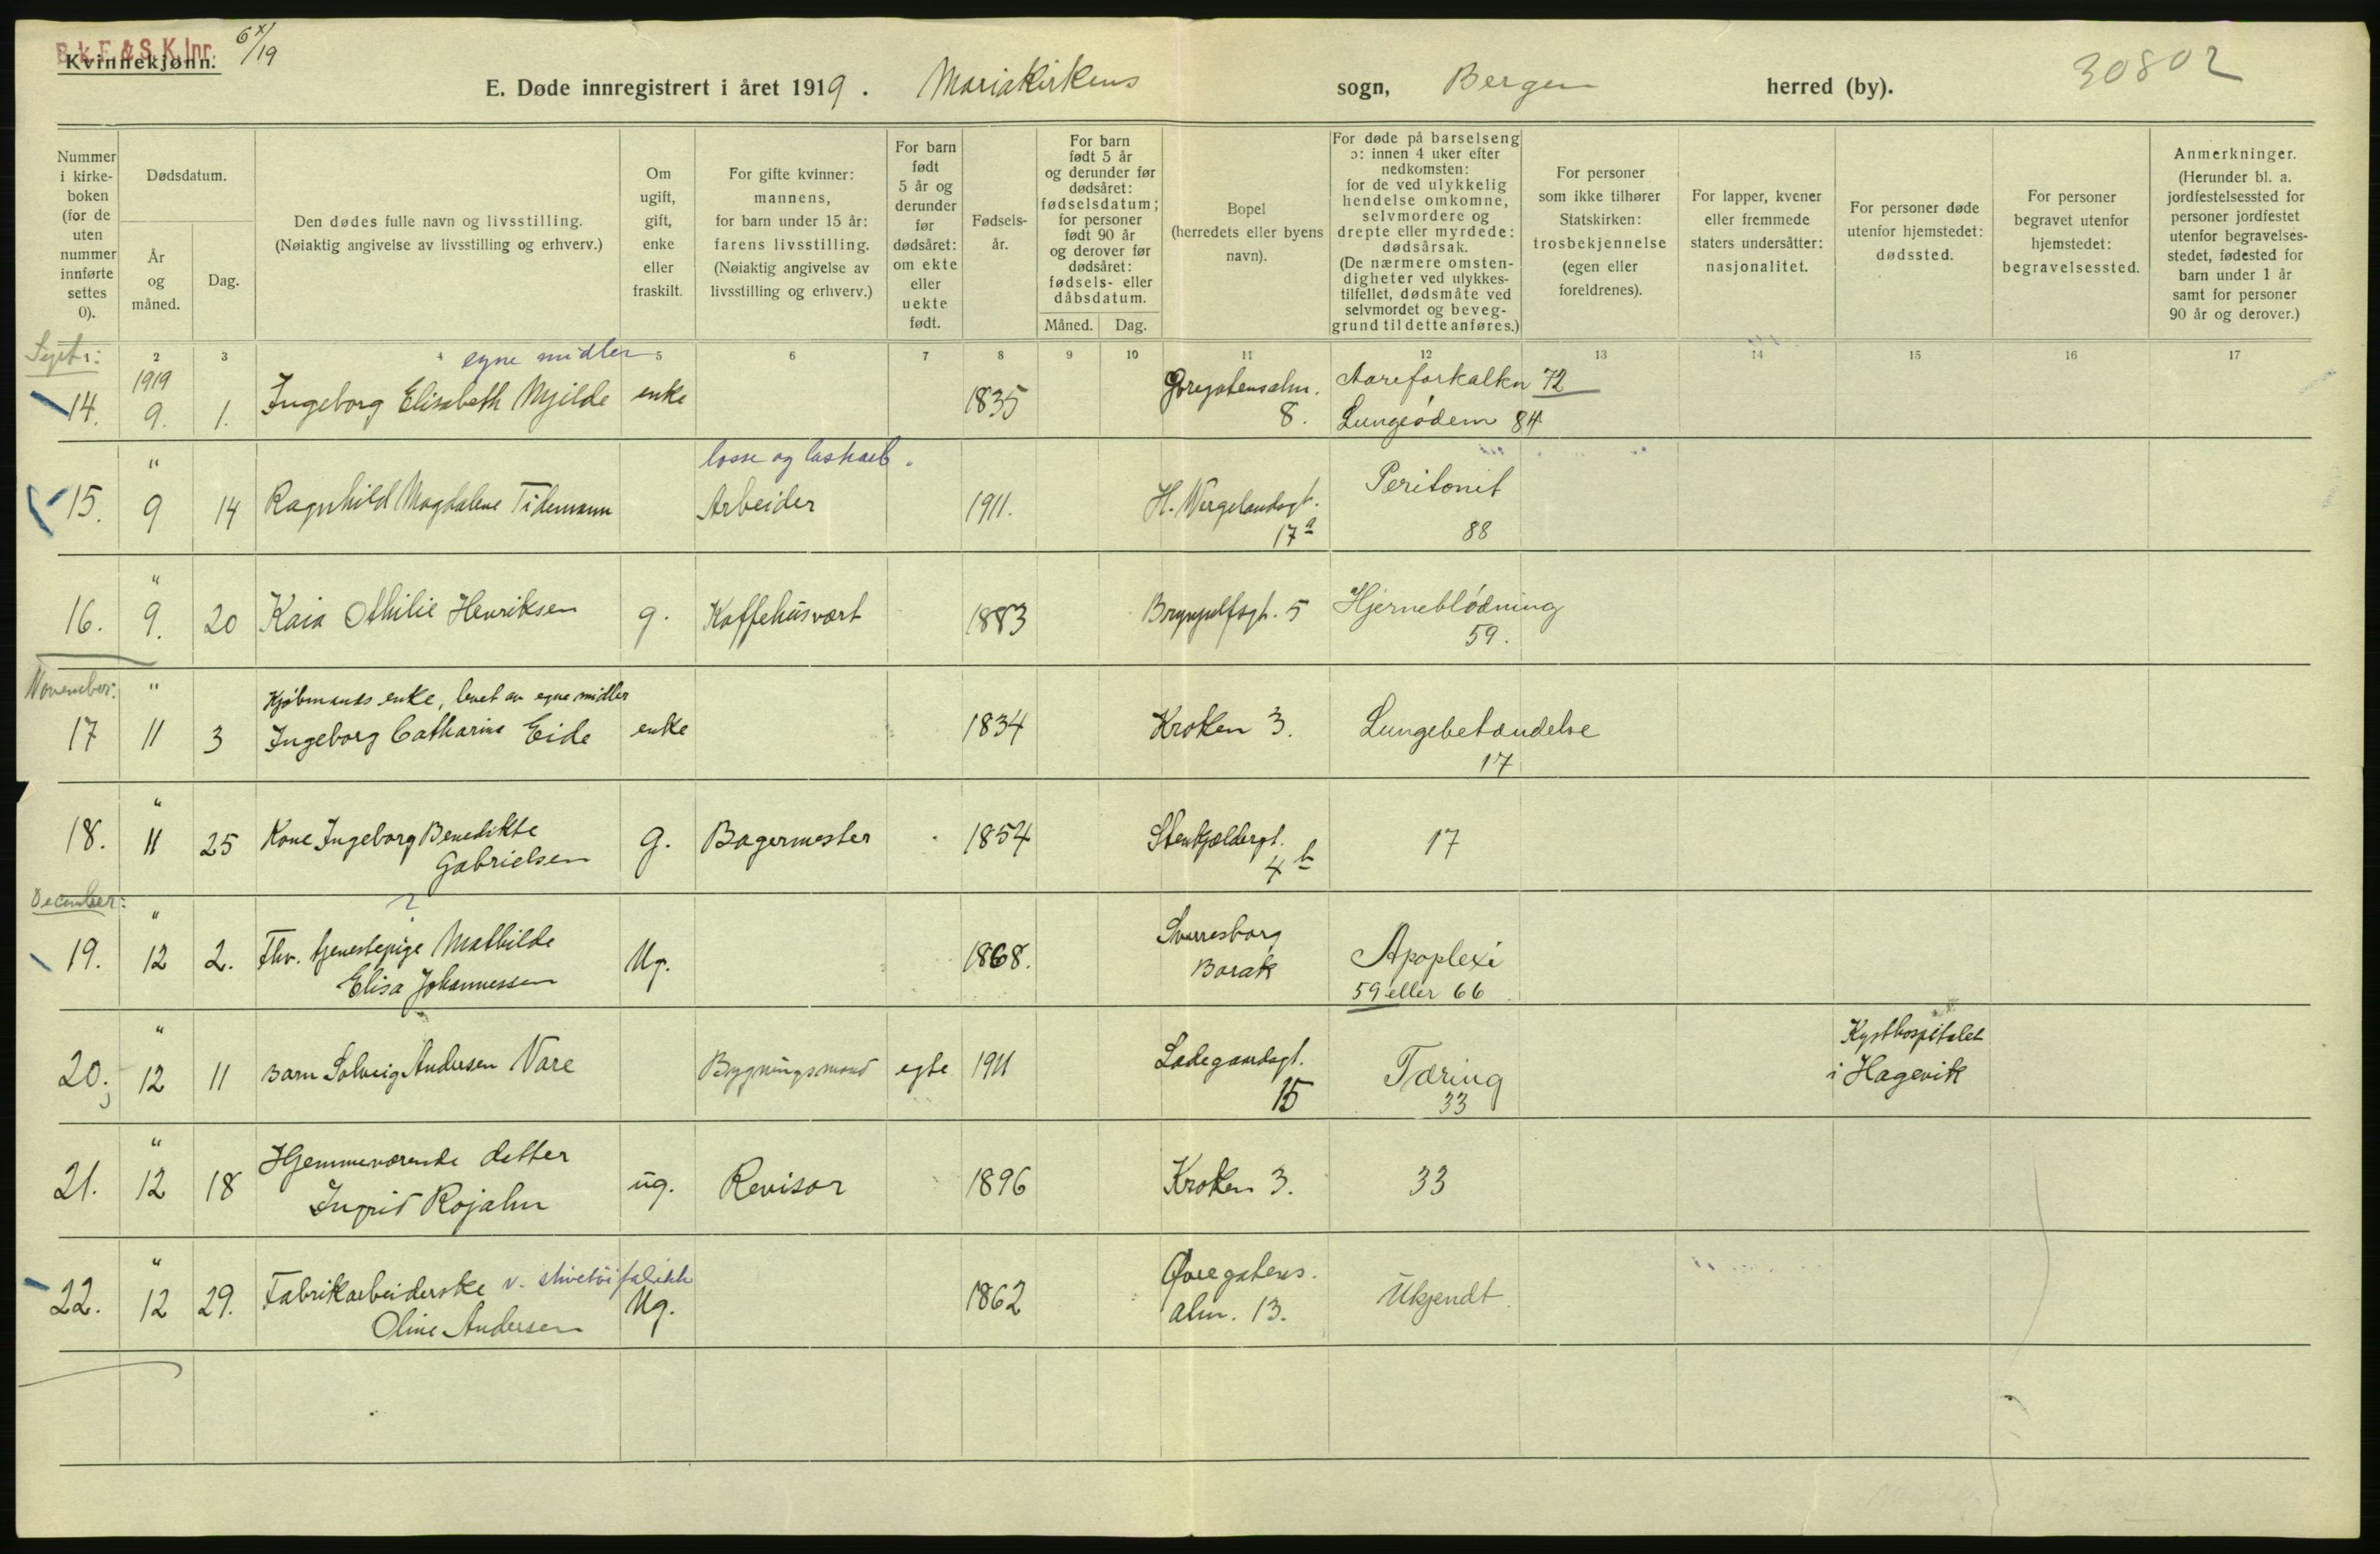 B.k.F. & S.K.Inr. 6/X 19
Kvinnekjønn.
30802
E. Døde innregistrert i året 1919. Mariakirkens sogn, Bergen herred (by).
Nummer i kirkeboken (for de uten nummer innførte settes 0).
Dødsdatum.
År og måned.
Dag.
Den dødes fulle navn og livsstilling. (Nøiaktig angivelse av livsstilling og erhverv.)
Om ugift, gift, enke eller fraskilt.
For gifte kvinner: mannens, for barn under 15 år: farens livsstilling. (Nøiaktig angivelse av livsstilling og erhverv.)
For barn født 5 år og derunder før dødsåret: om ekte eller uekte født.
Fødselsår.
For barn født 5 år og derunder før dødsåret: fødselsdatum; for personer født 90 år og derover før dødsåret: fødsels- eller dåbsdatum.
Måned. Dag.
Bopel (herredets eller byens navn).
For døde på barselseng ɔ: innen 4 uker efter nedkomsten: for de ved ulykkelig hendelse omkomne, selvmordere og drepte eller myrdede: dødsårsak. (De nærmere omstendigheter ved ulykkestilfellet, dødsmåte ved selvmordet og beveggrund til dette anføres.)
For personer som ikke tilhører Statskirken: trosbekjennelse (egen eller foreldrenes).
For lapper, kvener eller fremmede staters undersåtter: nasjonalitet.
For personer døde utenfor hjemstedet: dødssted.
For personer begravet utenfor hjemstedet: begravelsessted.
Anmerkninger. (Herunder bl. a. jordfestelsessted for personer jordfestet utenfor begravelsesstedet, fødested for barn under 1 år samt for personer 90 år og derover.)
1 2 3 4 5 6 7 8 9 10 11 12 13 14 15 16 17
Sept:
1919 egne midler
14. 9. 1. Ingeborg Elisabeth Mjilde enke 1835 Øvregatensalm. 8. Aareforkalkn 72
Lungeödem 84
" losse og lastearb.
15. 9 14 Ragnhild Magdalene Tidemann Arbeider 1911. H. Wergelandsgt. 17a Peritonit
88
"
16. 9. 20 Kaia Othilie Henriksen g. Kaffehusvært 1883 Brynjulfsgt. 5 Hjerneblödning
59.
November:
" Kjöbmands enke, levet av egne midler
17 11 3 Ingeborg Catharine Eide enke 1834 Kroken 3. Lungebetændelse
17
"
18. 11 25 Kone Ingeborg Benedikte Gabrielsen g. Bagermester 1854 Stenkjeldergt. 4b 17
December:
"
19. 12 2. Fhv. tjenestepige Mathilde Elisa Johannessen Ug. 1868. Sverresborg Barak Apoplexi
59 eller 66
"
20. 12 11 Barn Solveig Andersen Vare Bygningsmand egte 1911 Ladegaardsgt. 15 Tæring
33
Kysthospitalet i Hagevik
"
21. 12 18 Hjemmeværende datter Ingrid Rojahn ug. Revisor 1896 Kroken 3. 33
"
22. 12 29. Fabrikarbeiderske v. stivetöifabrikk Oline Andersen Ug. 1862 Øvregatens alm. 13. Ukjendt.